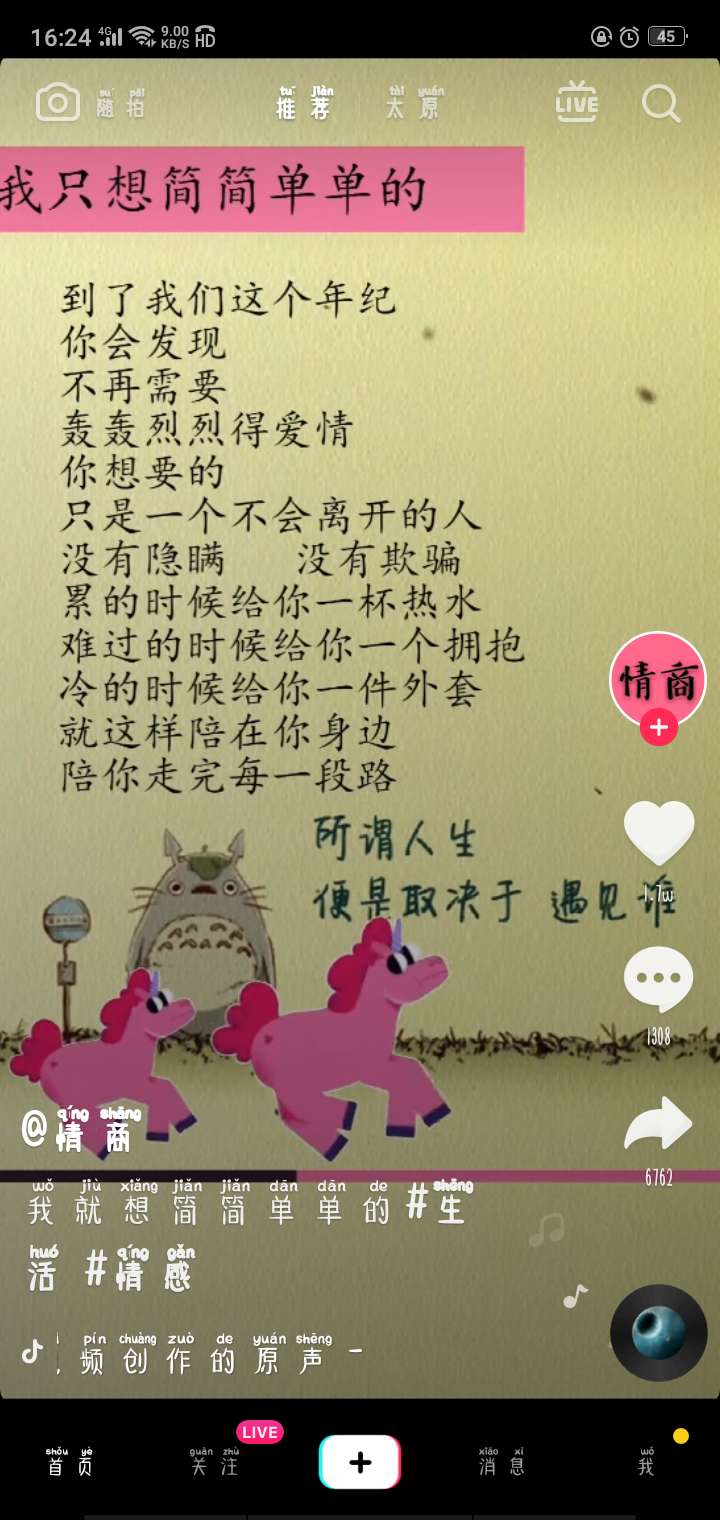 16:24 4G 9.00 KB/S HD 45
suí pāi tuī jiàn tài yuán
随拍 推荐 太原 LIVE
我只想简简单单的
到了我们这个年纪
你会发现
不再需要
轰轰烈烈得爱情
你想要的
只是一个不会离开的人
没有隐瞒 没有欺骗
累的时候给你一杯热水
难过的时候给你一个拥抱
冷的时候给你一件外套
就这样陪在你身边
陪你走完每一段路
情商
所谓人生
便是取决于 遇见谁
1.7w
1308
6762
qíng shāng
@情商
wǒ jiù xiǎng jiǎn jiǎn dān dān de shēng
我就想简简单单的 #生
huó qíng gǎn
活 #情感
pín chuàng zuò de yuán shēng
频创作的原声 -
LIVE
shǒu yè guān zhù xiāo xi wǒ
首页 关注 + 消息 我